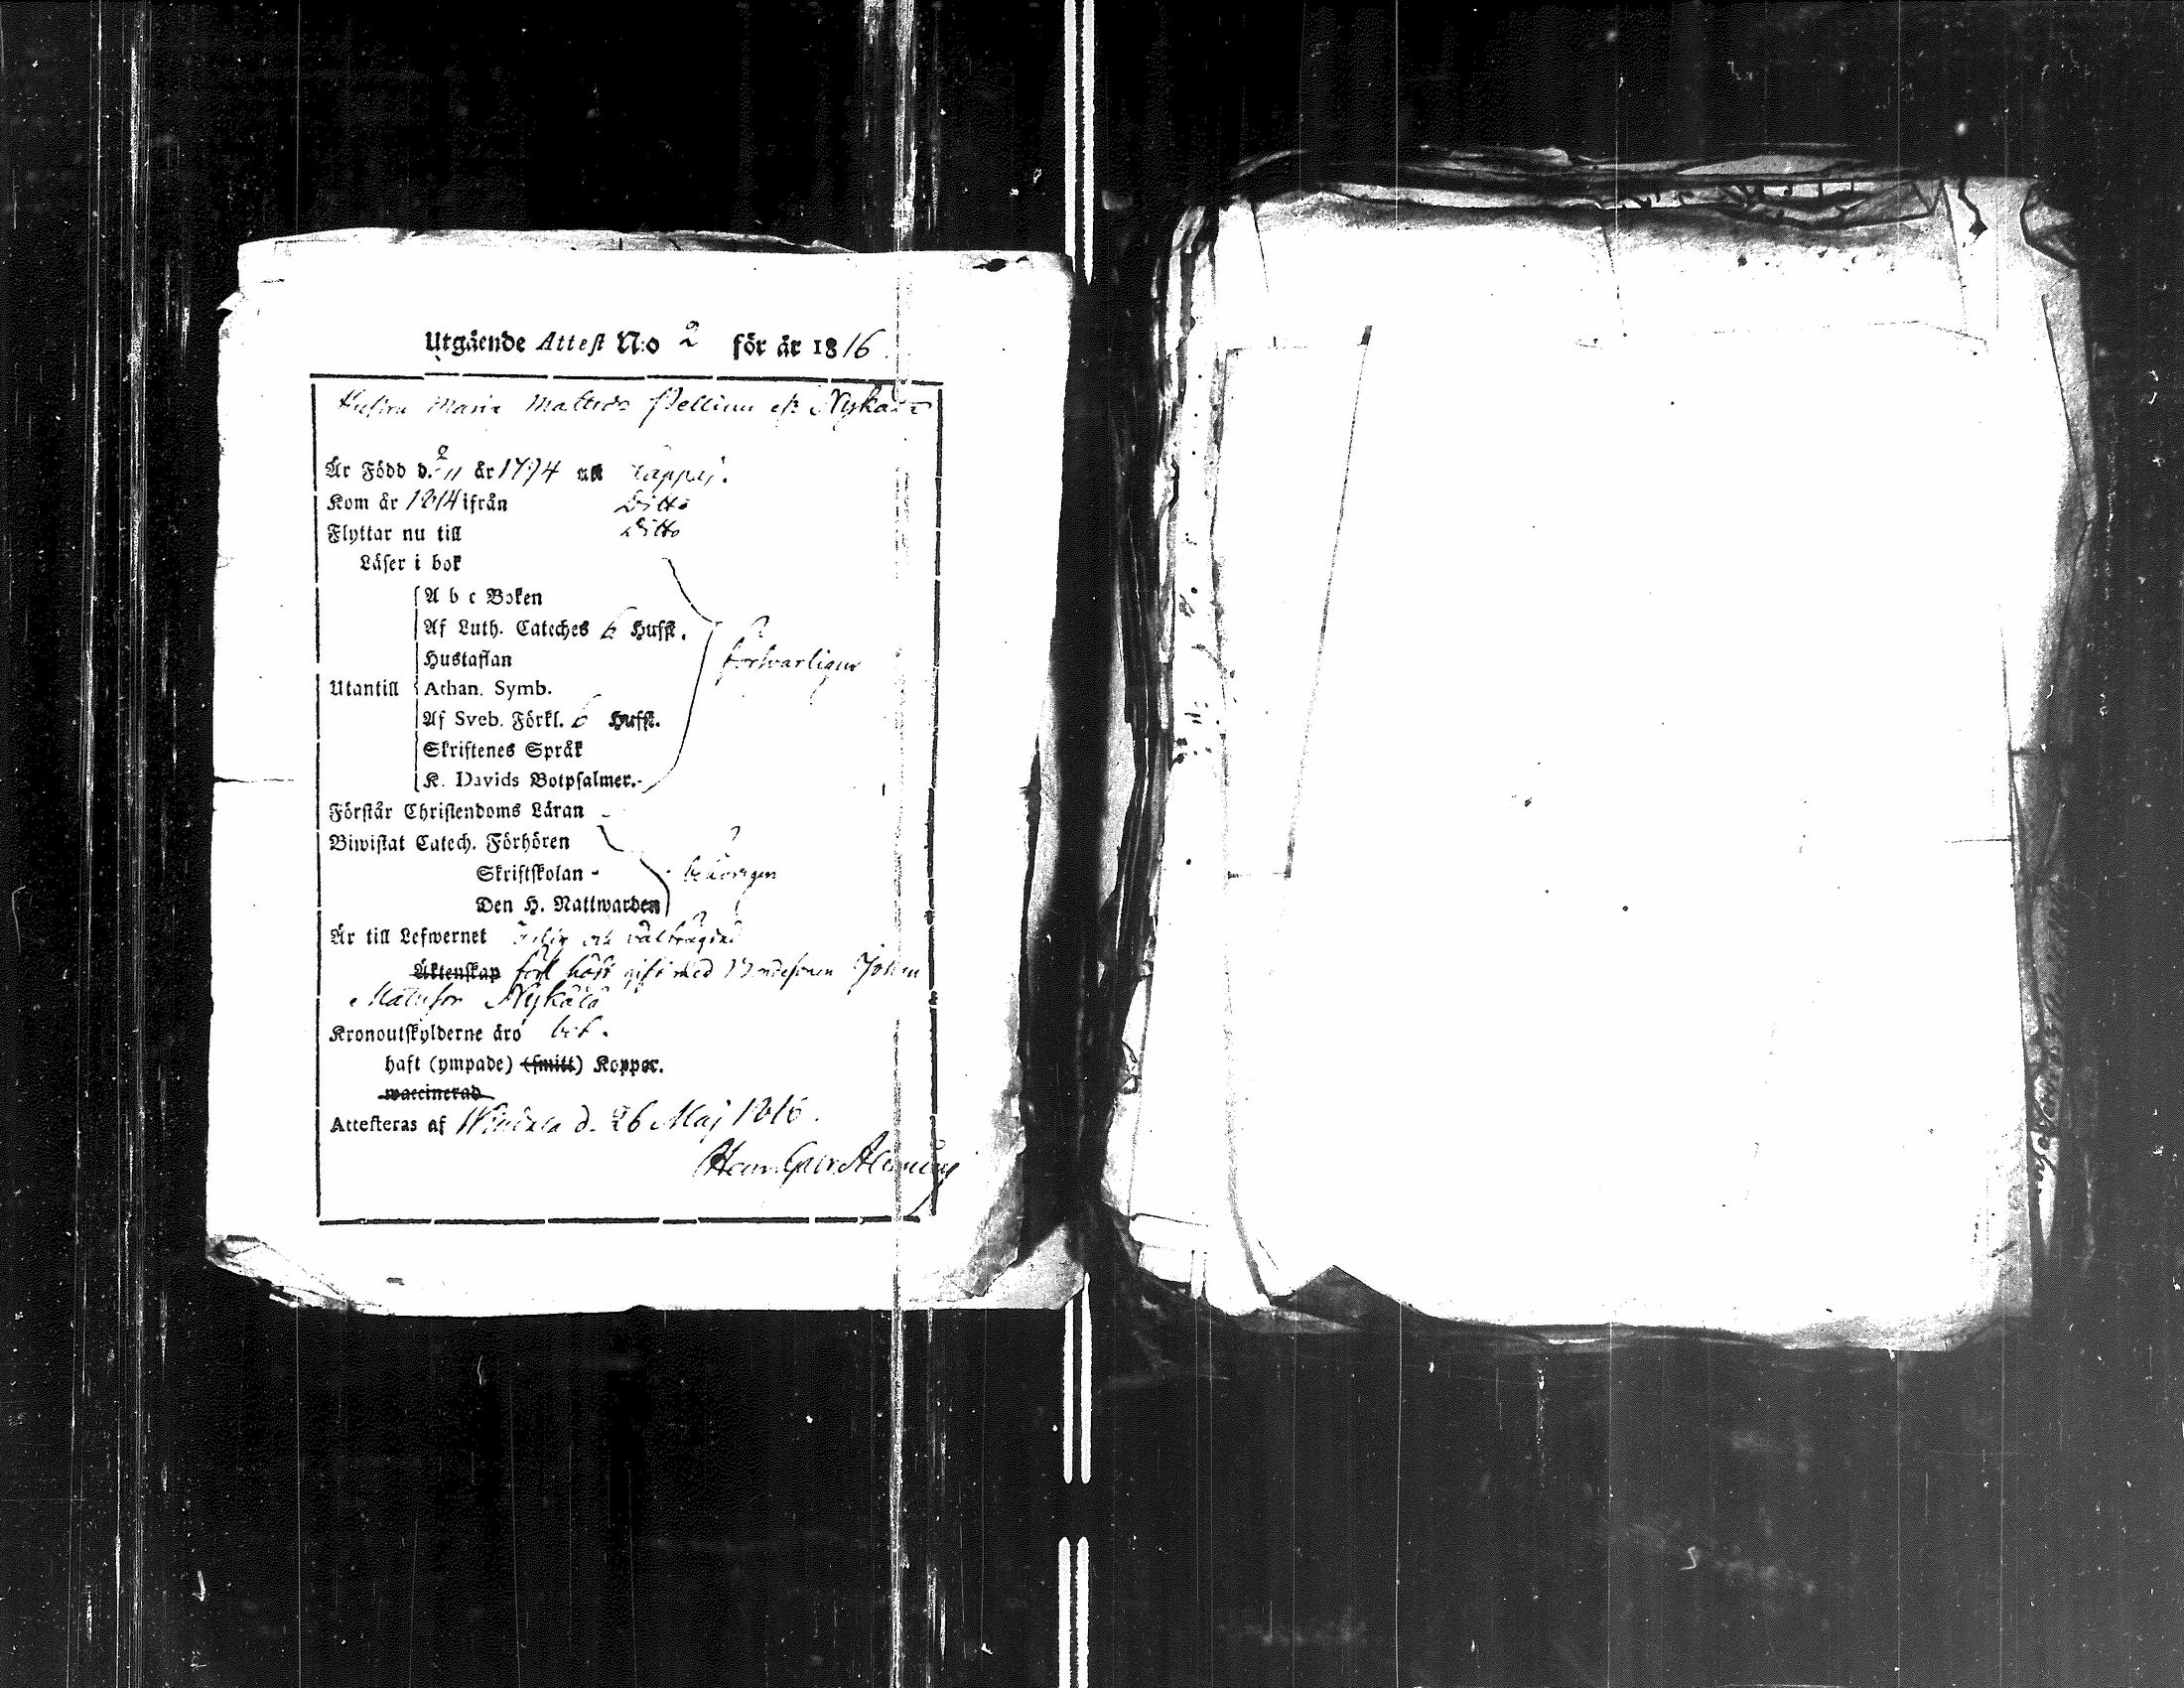 Utgående Attest N:o 2 för år 1816.
Hustru Maria Mattsdr Pellinn Nykälä
Är Född d. 2/11 år 1794 Lappaj.
Kom år 1814 ifrån Ditto
Flyttar nu till Ditto
Läser i bok
A b c Boken
Af Luth. Cateches 6 Hufst.
Hustaflan
försvarligen
Utantill Athan. Symb.
Af Sveb. Förkl. 6 Hufst.
Skriftenes Språk
K. Davids Botpsalmer.
Förstår Christendoms Läran
Biwistat Catech. Förhören
Skriftskolan -
Den H. Nattwarden
Är till Lefwernet och välfrägdad
Äktenskap förl. höst gift med Bondesonen Johan
Mattsson Nykälä
Kronoutskylderne äro bet.
haft (ympade) (smitt) Koppor.
waccinerad
Attesteras af Windala d. 26 Maj 1816.